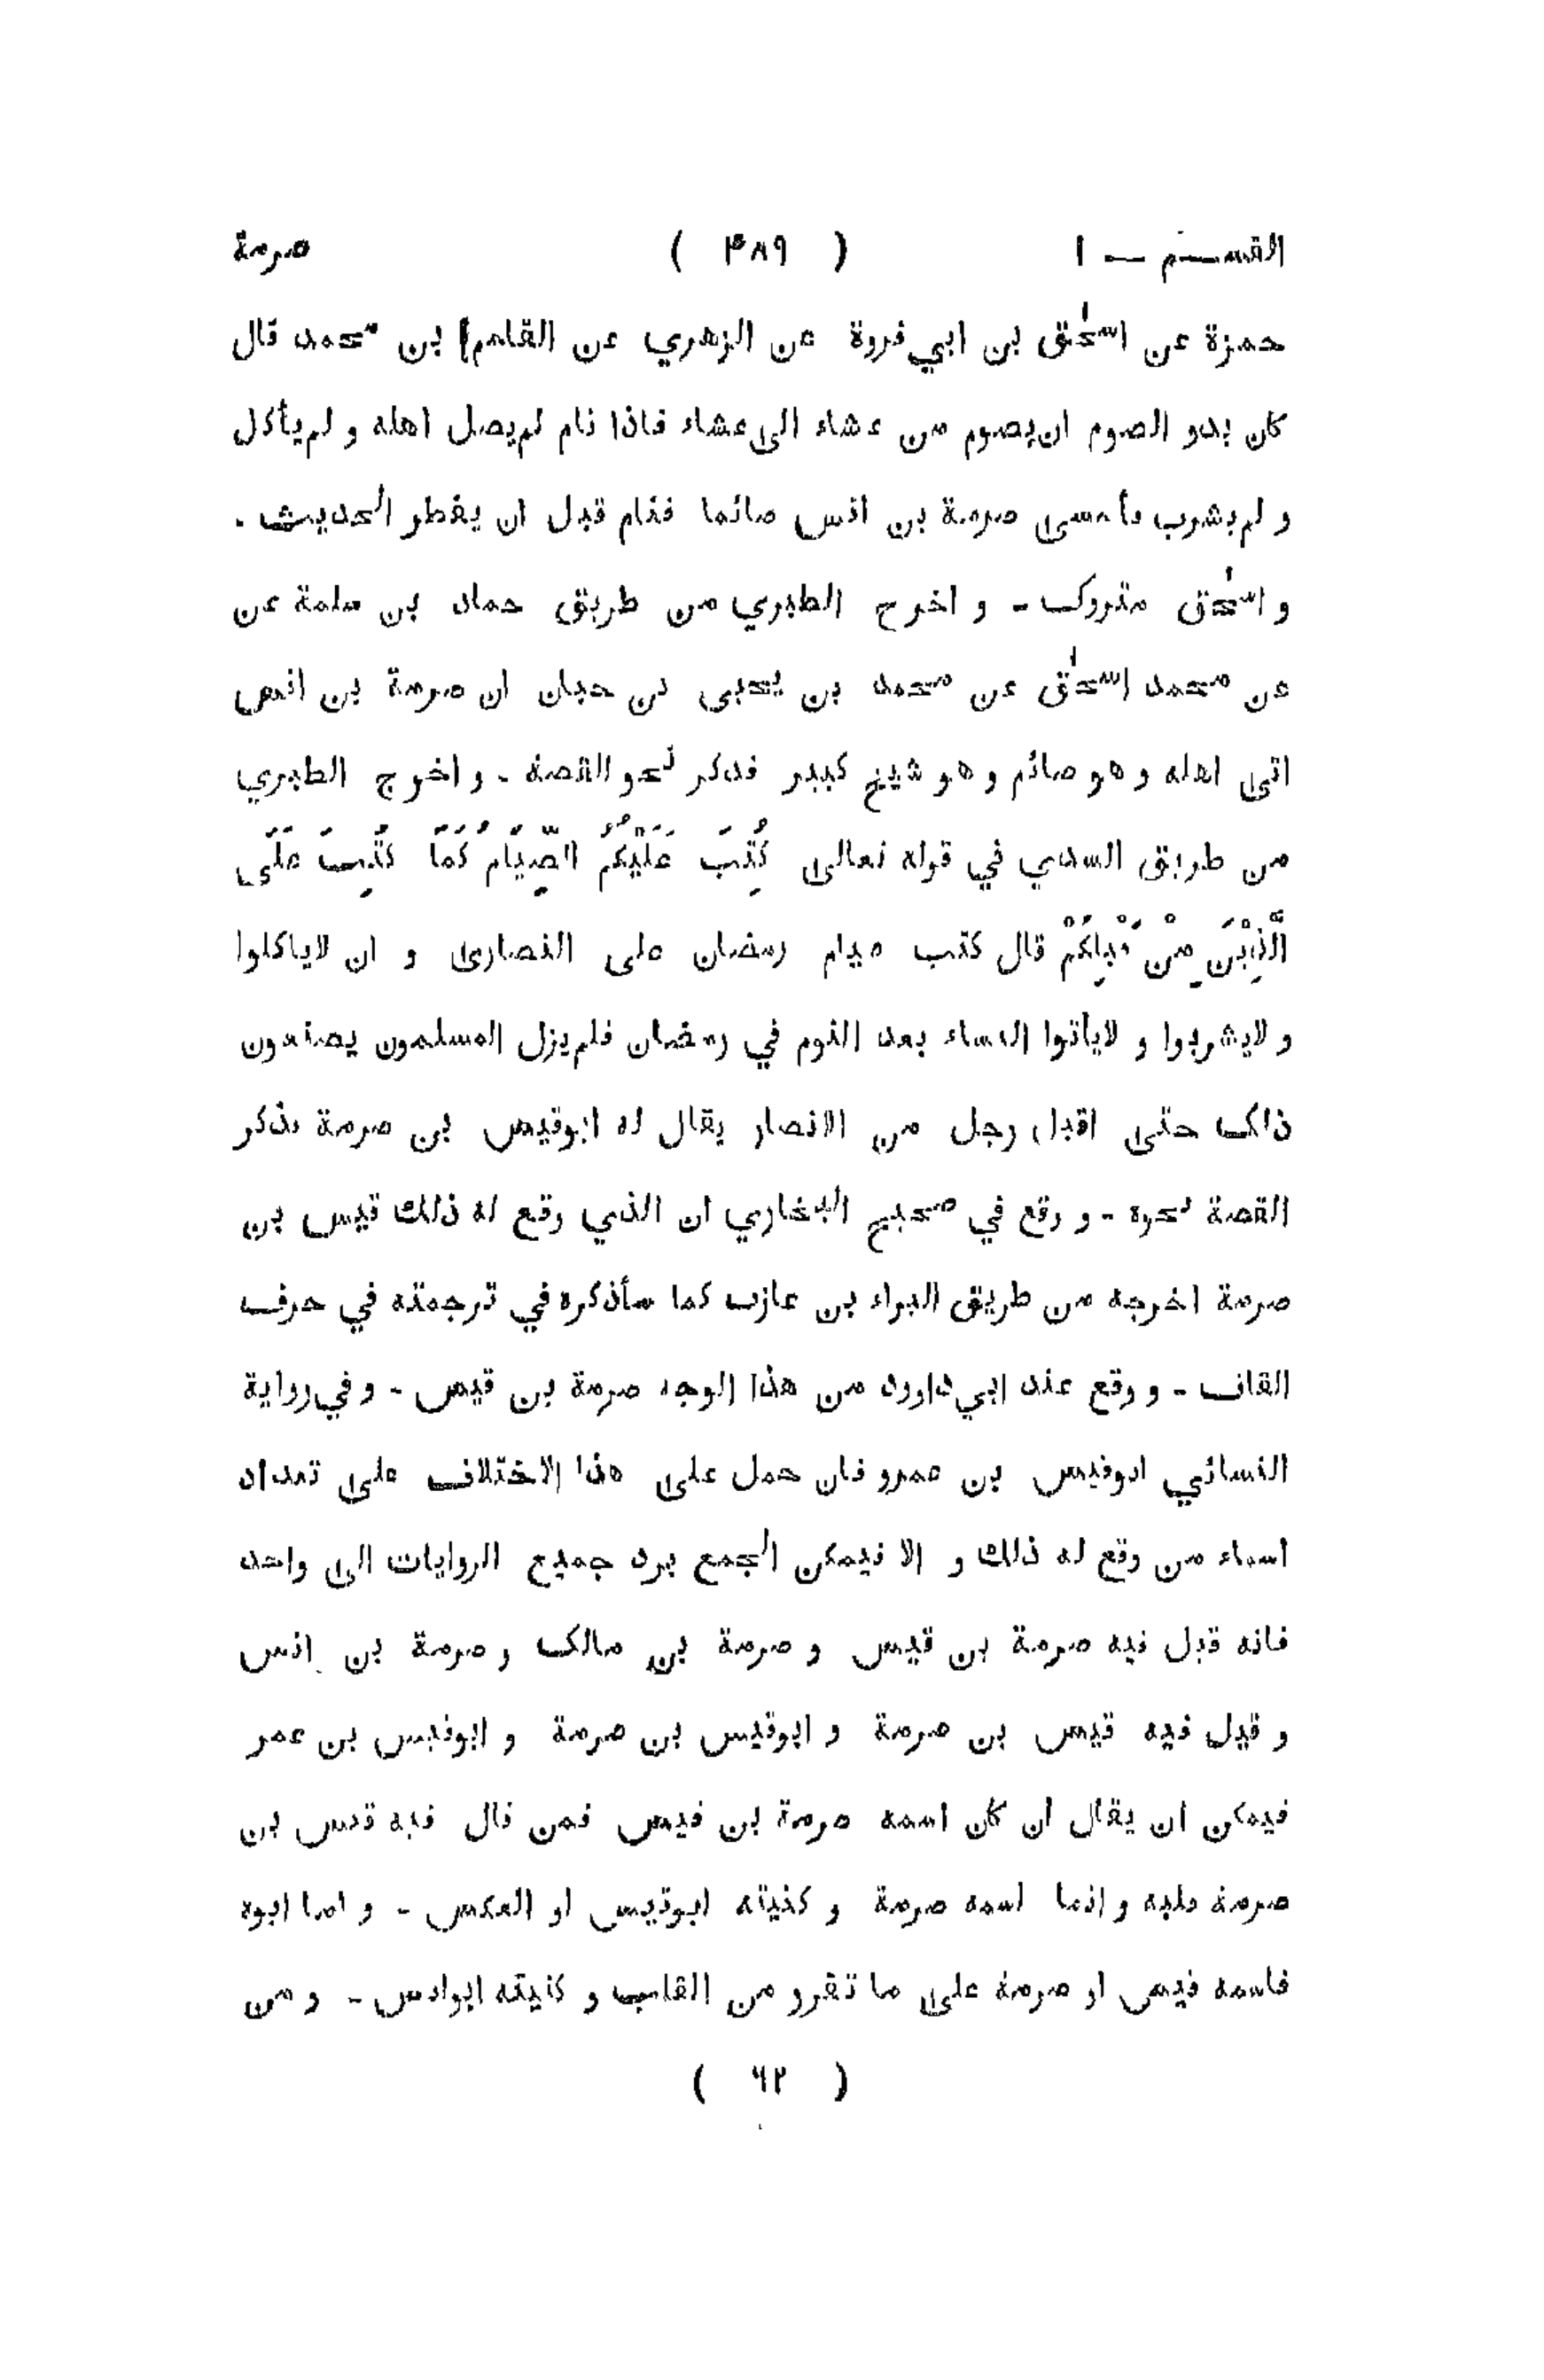 القسم — ١ ( ۳۸۹ ) صرمة
حمزة عن اسحٰق بن ابي فروة عن الزهري عن القاسم بن محمد قال
كان بدو الصوم ان يصوم من عشاء الى عشاء فاذا نام لم يصل اهله و لم يأكل
و لم يشرب فأمسى صرمة بن انس صائما فنام قبل ان يفطر الحديث .
و اسحٰق متروك - و اخرج الطبري من طريق حماد بن سلمة عن
عن محمد اسحٰق عن محمد بن يحيى بن حبان ان صرمة بن انس
اتى اهله و هو صائم و هو شيخ كبير فذكر نحو القصة - و اخرج الطبري
من طريق السدي في قوله تعالى كُتِبَ عَلَيْكُمُ الصِّيَامُ كَمَا كُتِبَ عَلَى
الَّذِيْنَ مِنْ قَبْلِكُمْ قال كتب صيام رمضان على النصارى و ان لاياكلوا
و لايشربوا و لايأتوا النساء بعد النوم في رمضان فلم يزل المسلمون يصنعون
ذلك حتى اقبل رجل من الانصار يقال له ابوقيس بن صرمة فذكر
القصة نحوه - و وقع في صحيح البخاري ان الذي وقع له ذلك قيس بن
صرمة اخرجه من طريق البراء بن عازب كما سأذكره في ترجمته في حرف
القاف - و وقع عند ابي داوود من هذا الوجه صرمة بن قيس - و في رواية
النسائي ابوقيس بن عمرو فان حمل على هذا الاختلاف على تعداد
اسماء من وقع له ذلك و الا فيمكن الجمع برد جميع الروايات الى واحد
فانه قيل فيه صرمة بن قيس و صرمة بن مالك و صرمة بن انس
و قيل فيه قيس بن صرمة و ابوقيس بن صرمة و ابوقيس بن عمر
فيمكن ان يقال ان كان اسمه صرمة بن قيس فمن قال فيه قيس بن
صرمة قلبه و انما اسمه صرمة و كنيته ابوقيس او العكس - و اما ابوه
فاسمه قيس او صرمة على ما تقرر من القلب و كنيته ابوانس - و من
( ٦٢ )